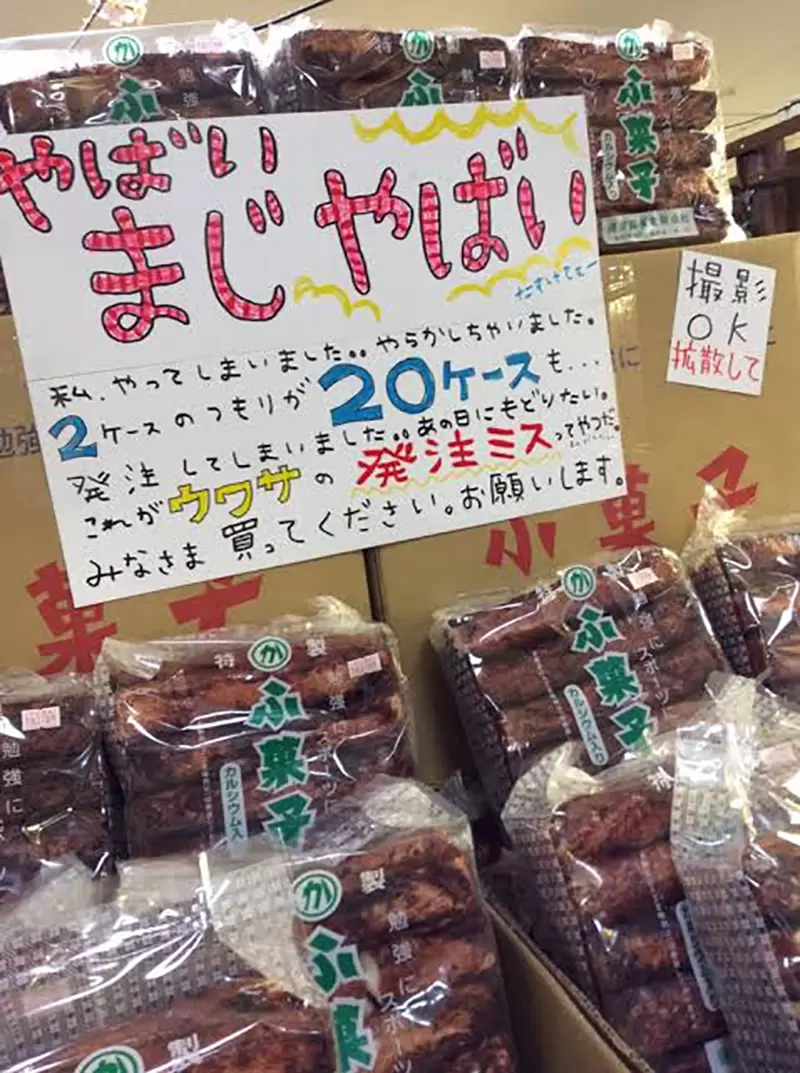 特 製
か
ふ
勉強
特 製
か
ふ
か
ふ菓子
カルシウム入り
やばい
まじ やばい
たすけてぇー
私、やってしまいました。。やらかしちゃいました。
2ケースのつもりが20ケースも...
発注してしまいました。。あの日にもどりたい。
これがウワサの発注ミスってやつだ。
みなさま買ってください。お願いします。
撮影
OK
拡散して
勉強
に
菓子
ふ菓子
特 製
か
ふ菓子
勉強にスポーツに
カルシウム入り
か
ふ菓子
強にスポーツ
カルシウム入り
勉強に
か
製
ふ菓
勉強にスポーツ
特
か
製